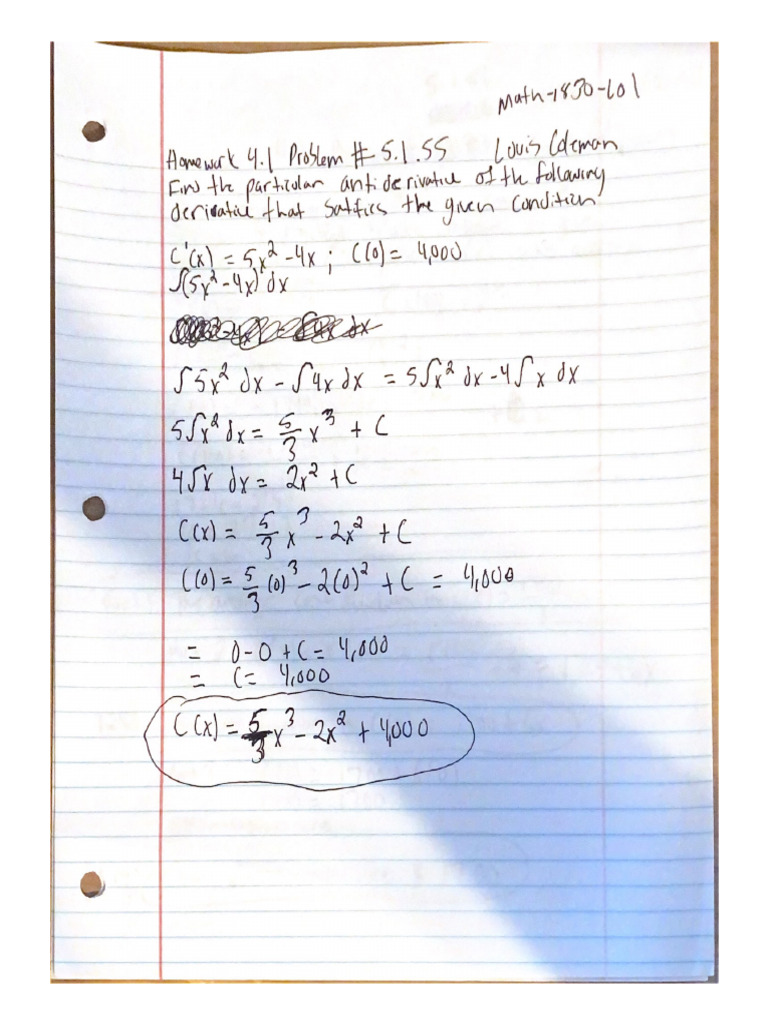 Math-1830-601
Homework 4.1 Problem # 5.1.55 Louis Coleman
Find the particular antiderivative of the following
derivative that satifies the given condition.
C'(x) = 5x² - 4x ; C(0) = 4,000
∫(5x² - 4x) dx
∫5x² dx - ∫4x dx = 5∫x² dx - 4∫x dx
5∫x² dx = 5/3 x³ + C
4∫x dx = 2x² + C
C(x) = 5/3 x³ - 2x² + C
C(0) = 5/3 (0)³ - 2(0)² + C = 4,000
= 0 - 0 + C = 4,000
= C = 4,000
C(x) = 5/3 x³ - 2x² + 4,000